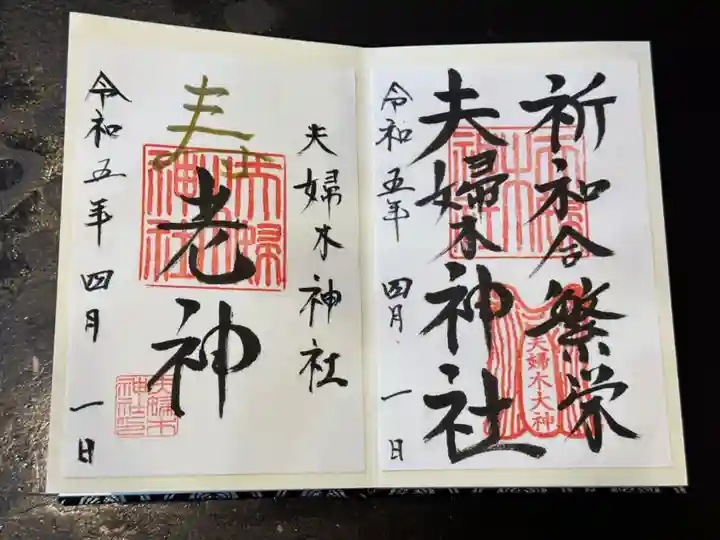 祈和合繁栄
夫婦木神社
夫婦木大神
令和五年 四月 一日
夫婦木神社
寿
老神
夫婦木神社
令和五年 四月 一日